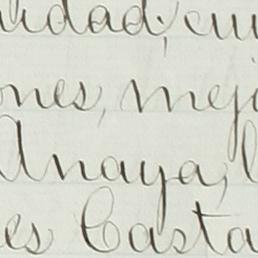 lidad; cu
ones, mejo
Anaya,
es Casta